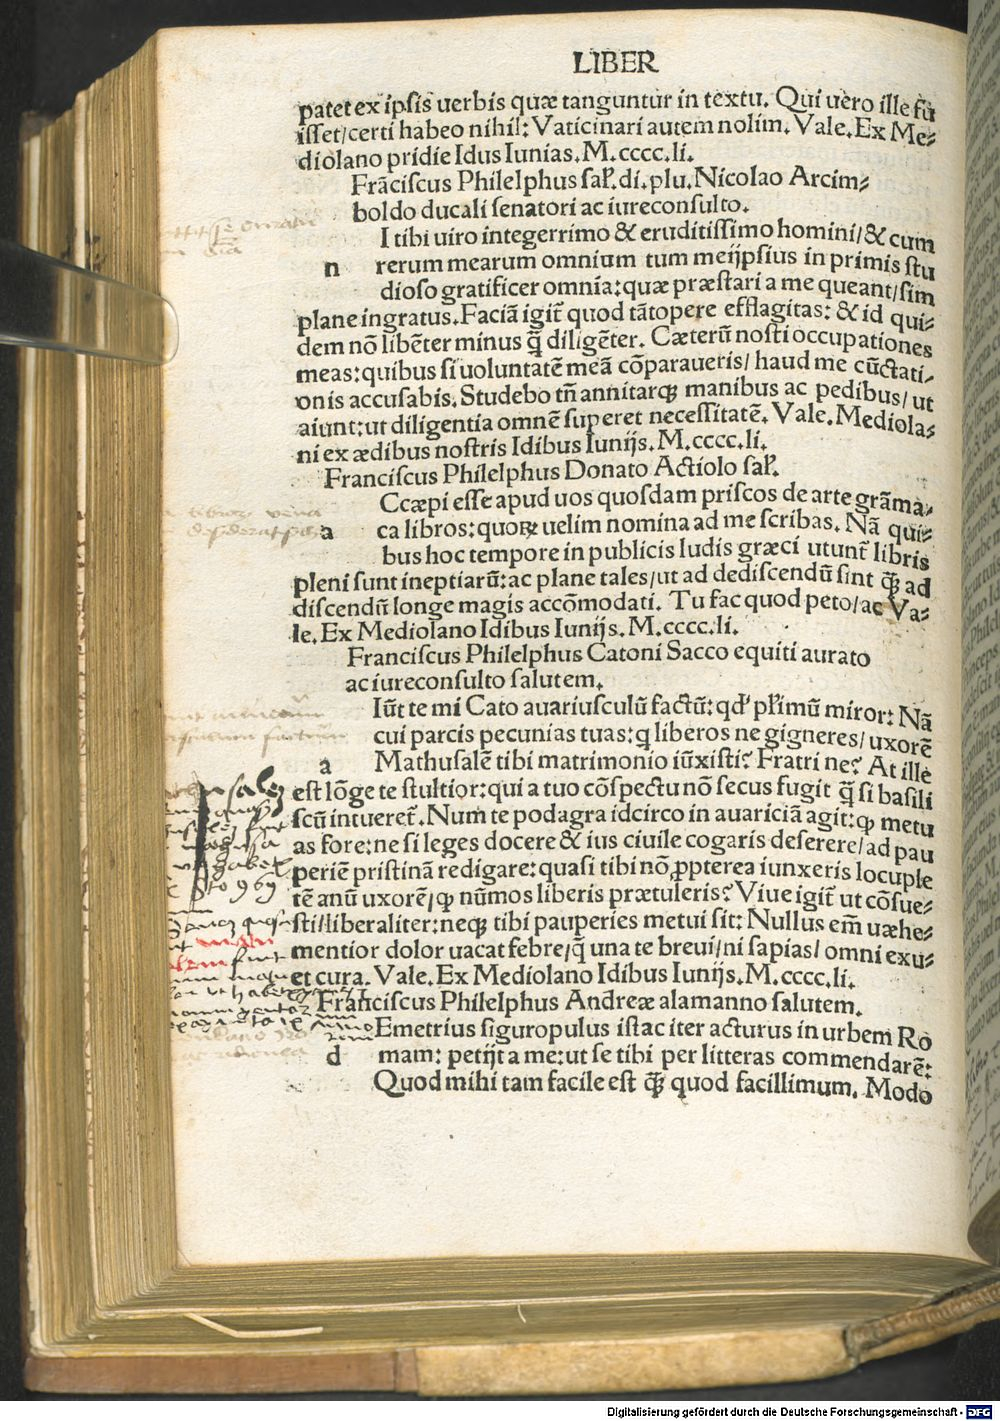 LIBER
patet ex ipsis uerbis quæ tanguntur in textu. Qui uero ille fu
isset/certi habeo nihil: Vaticinari autem nolim. Vale. Ex Me⸗
diolano pridie Idus Iunias. M.cccc.li.
Frāciscus Philelphus saꝉ. di. plu. Nicolao Arcim⸗
boldo ducali senatori ac iureconsulto.
I tibi uiro integerrimo & eruditissimo homini/& cum
n rerum mearum omnium tum meijpsius in primis stu
dioso gratificer omnia: quæ præstari a me queant/sim
plane ingratus. Faciā igit̄ quod tātopere efflagitas: & id qui⸗
dem nō libēter minus q̄ diligēter. Cæterū nosti occupationes
meas: quibus si uoluntatē meā cōparaueris/ haud me cūctati⸗
onis accusabis. Studebo tn̄ annitarqꝫ manibus ac pedibus/ ut
aiunt: ut diligentia omnē superet necessitatē. Vale. Mediola⸗
ni ex ædibus nostris Idibus Iunijs. M.cccc.li.
Franciscus Philelphus Donato Actiolo saꝉ.
Ccæpi esse apud uos quosdam priscos de arte grāma⸗
a ca libros: quoꝝ uelim nomina ad me scribas. Nā qui⸗
bus hoc tempore in publicis ludis græci utunt̄ libris
pleni sunt ineptiarū: ac plane tales/ut ad dediscendū sint q̄ꝫ ad
discendū longe magis accōmodati. Tu fac quod peto/ac Va⸗
le. Ex Mediolano Idibus Iunijs. M.cccc.li.
Franciscus Philelphus Catoni Sacco equiti aurato
ac iureconsulto salutem.
Iūt te mi Cato auariusculū factū: qd̕ pꝉimū miror: Nā
cui parcis pecunias tuas: q liberos ne gigneres/ uxorē
a Mathusalē tibi matrimonio iūxisti? Fratri ne? At ille
est lōge te stultior: qui a tuo cōspectu nō secus fugit q̄ si basili
scū intueret̄. Num te podagra idcirco in auariciā agit: ꝙ metu
as fore: ne si leges docere & ius ciuile cogaris deserere/ad pau
periē pristinā redigare: quasi tibi nō ꝓpterea iunxeris locuple
tē anū uxorē/ꝙ nūmos liberis prætuleris? Viue igit̄ ut cōsue⸗
sti/liberaliter: neqꝫ tibi pauperies metui sit: Nullus em̄ uæhe⸗
mentior dolor uacat febre/q̄ una te breui/ni sapias/ omni exu⸗
et cura. Vale. Ex Mediolano Idibus Iunijs. M.cccc.li.
Franciscus Philelphus Andreæ alamanno salutem.
Emetrius siguropulus istac iter acturus in urbem Ro
d mam: petijt a me: ut se tibi per litteras commendarē:
Quod mihi tam facile est q̄ꝫ quod facillimum. Modo
Digitalisierung gefördert durch die Deutsche Forschungsgemeinschaft - DFG